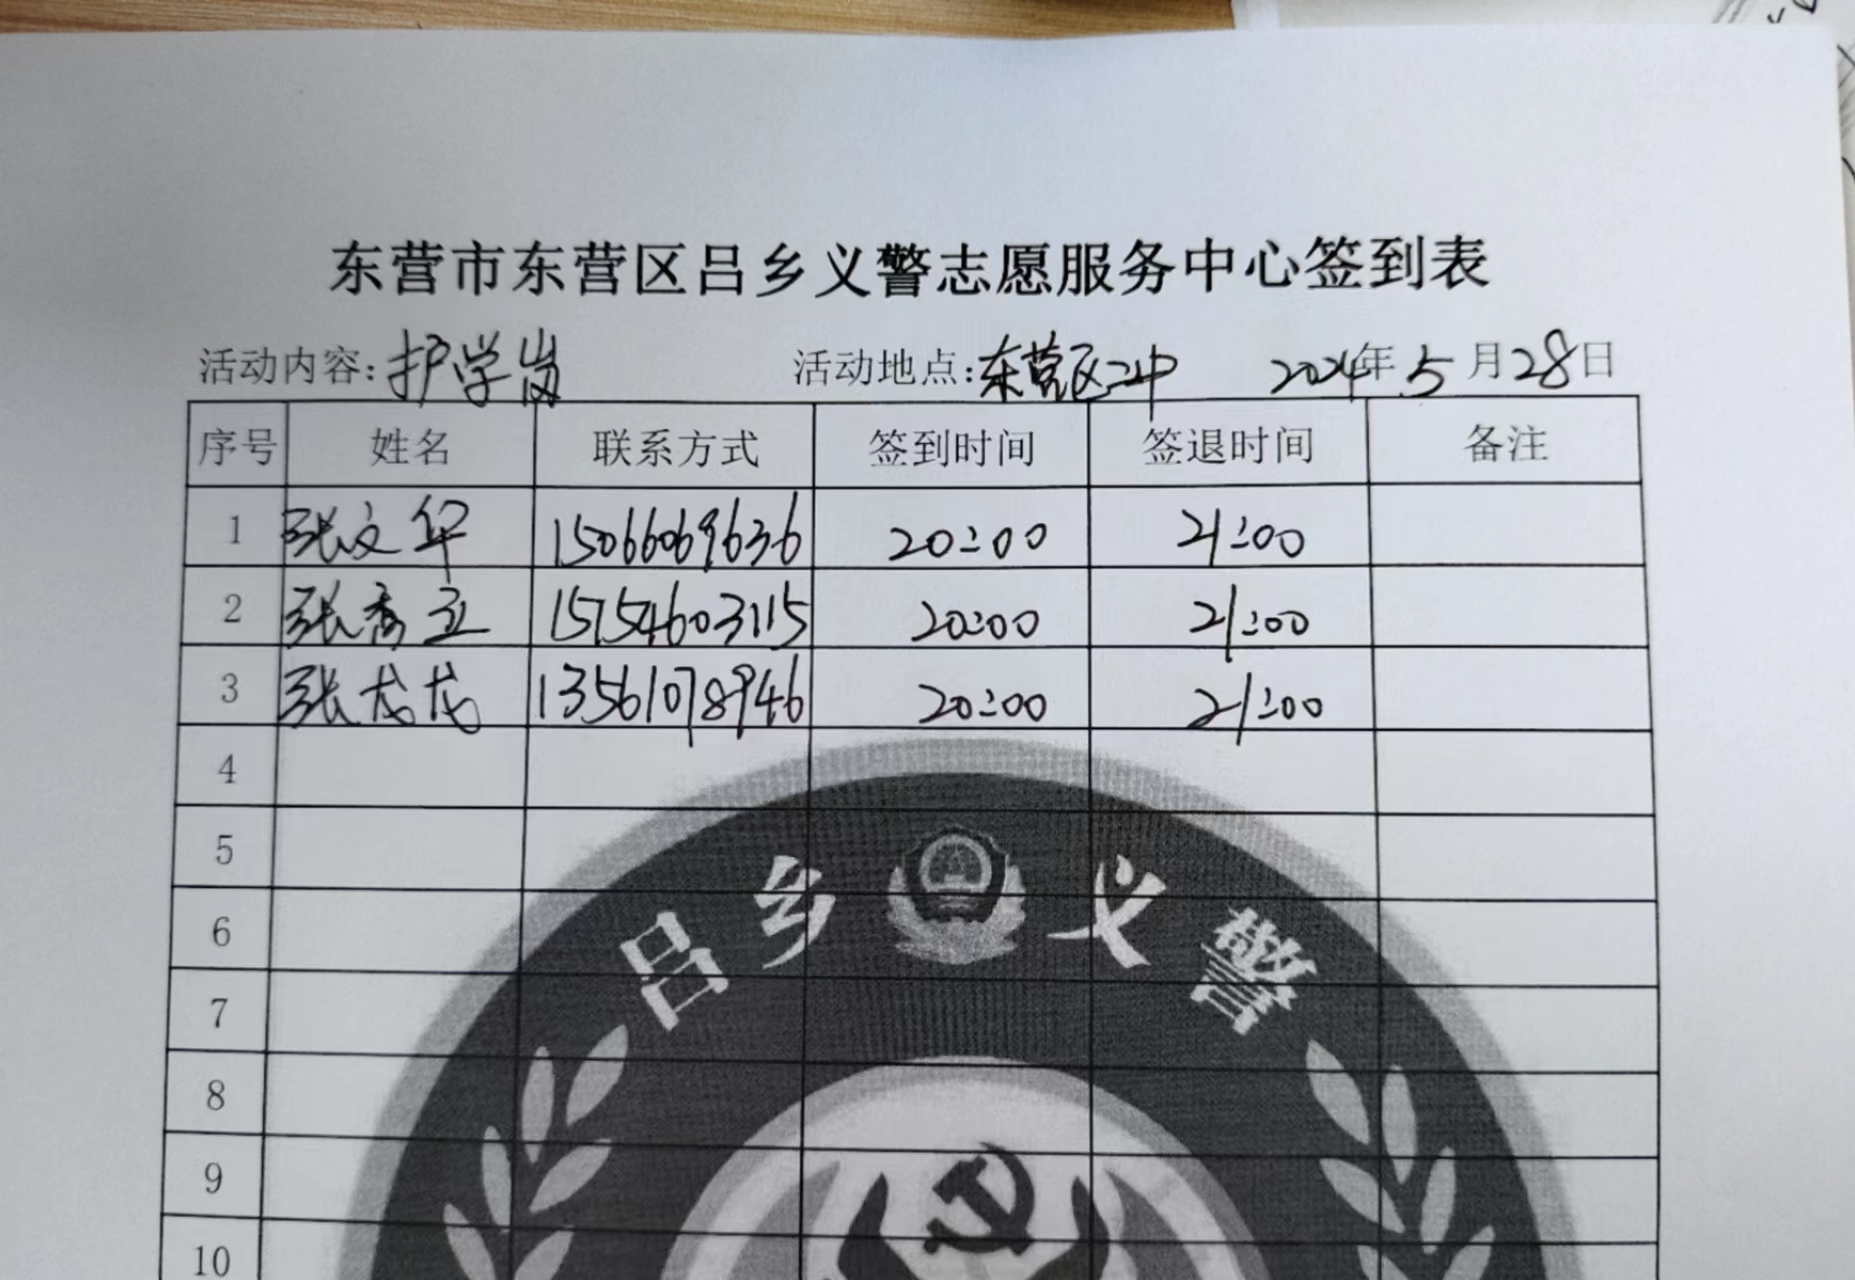 东营市东营区吕乡义警志愿服务中心签到表
活动内容:护学岗 活动地点:东营区二中 2024年5月28日
序号 姓名 联系方式 签到时间 签退时间 备注
1 张文华 15066069636 20:00 21:00
2 张秀立 15754603115 20:00 21:00
3 张龙龙 13561078946 20:00 21:00
4
5
6
7
8
9
10
吕乡义警